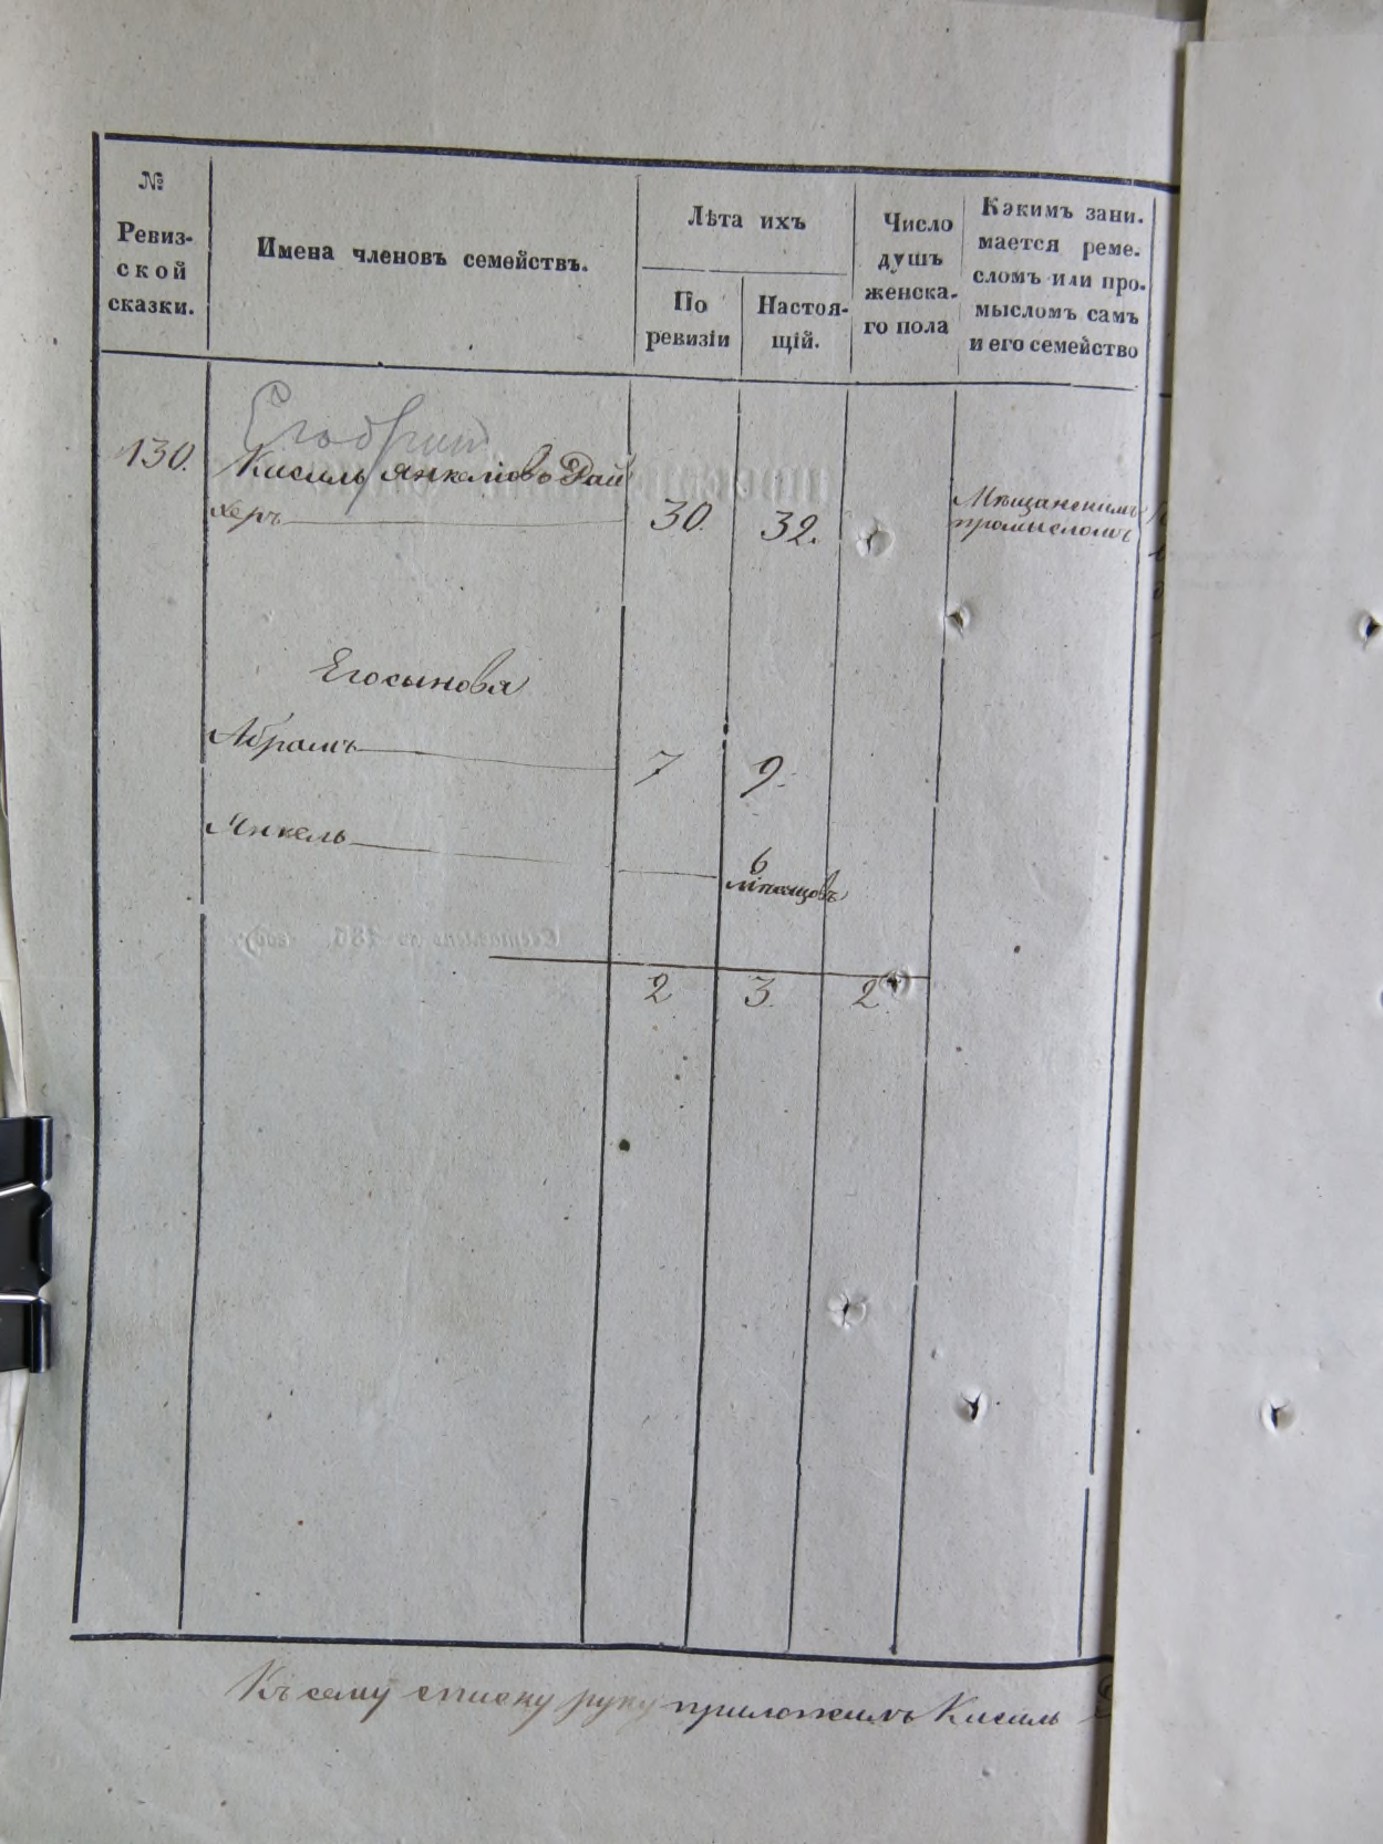 №
Ревиз-
ской
сказки.
Имена членовъ семействъ.
Лѣта ихъ
По
ревизіи
Настоя-
щій.
Число
душъ
женска-
го пола
Какимъ зани-
мается реме-
сломъ или про-
мысломъ самъ
и его семейство
130.
Кисиль Янкеліовъ Рай
херъ
30.
32.
Мѣщанскимъ
промысломъ
Его сыновя
Абрамъ
7
9.
Янкель
6
мѣсяцовъ
2
3
2
Къ сему списку руку приложилъ Кисиль